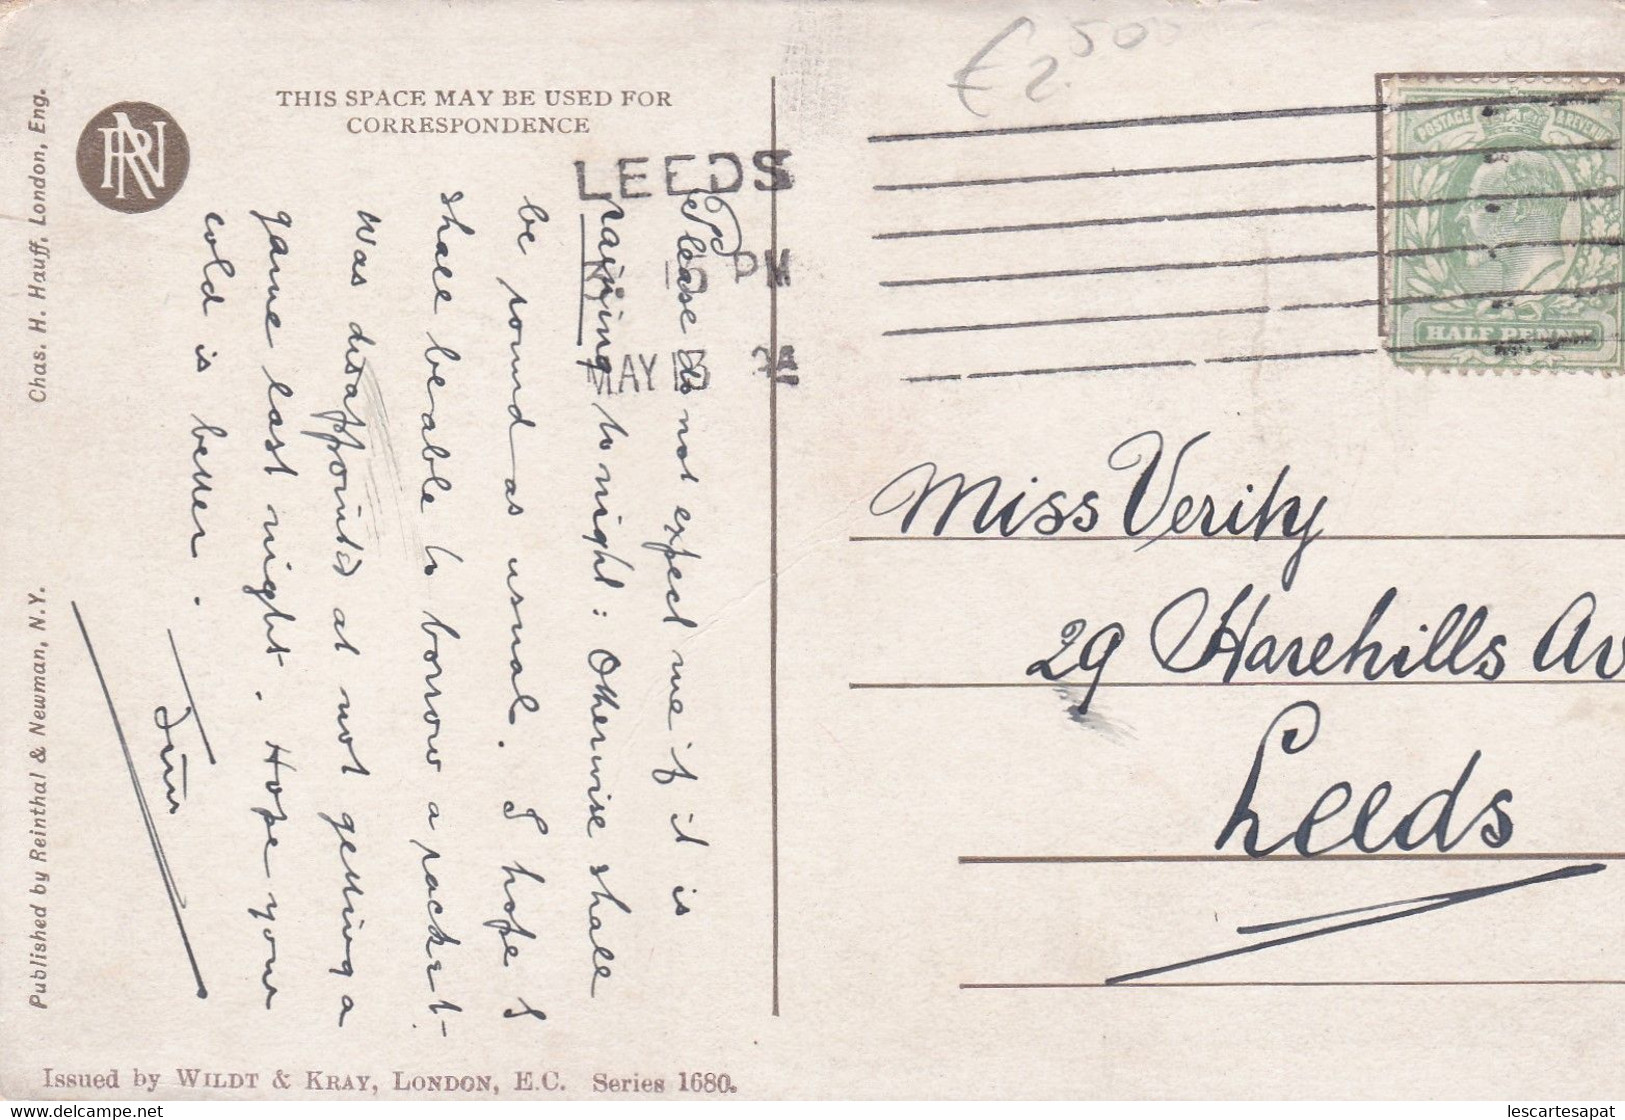 THIS SPACE MAY BE USED FOR
CORRESPONDENCE
RN
Chas. H. Hauff, London, Eng.
Published by Reinthal & Newman, N.Y.
Please do not expect me if it is
raining to night: Otherwise shall
be round as usual. I hope I
shall be able to borrow a racket.
Was disappointed at not getting a
game last night. Hope your
cold is better.
LEEDS
PM
MAY
€2.50
POSTAGE & REVENUE
HALF PENNY
Miss Verity
29 Harehills Av
Leeds
Issued by WILDT & KRAY, LONDON, E.C. Series 1680.
lescartesapat